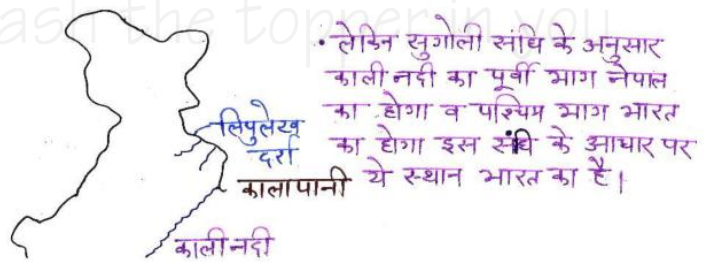 ash the topper in you
• लेकिन सुगोली संधि के अनुसार
काली नदी का पूर्वी भाग नेपाल
का होगा व पश्चिम भाग भारत
का होगा इस संधि के आधार पर
ये स्थान भारत का है।
लिपुलेख
दर्रा
कालापानी
काली नदी